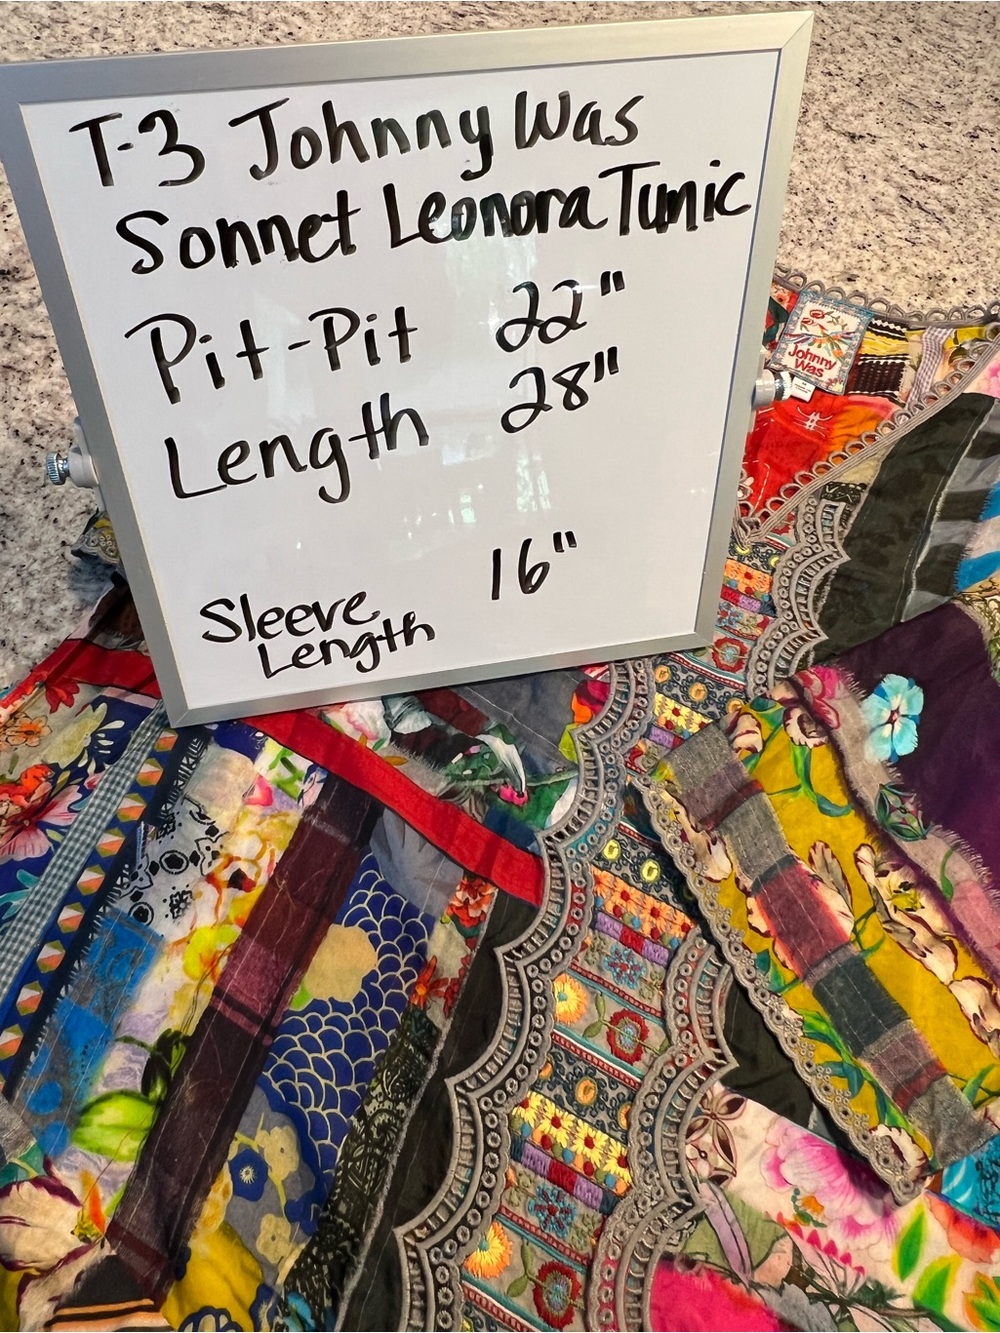 T-3 Johnny Was
Sonnet Leonora Tunic
Pit-Pit 22"
Length 28"
Sleeve Length 16"
Johnny
Was